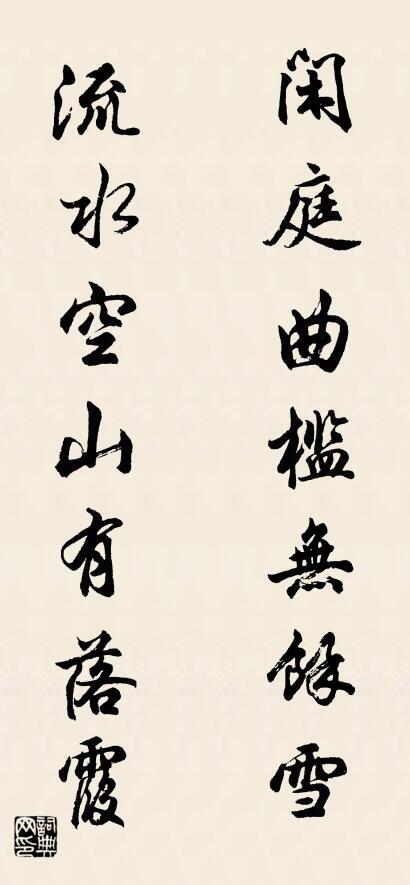 閑庭曲檻無餘雪
流水空山有落霞
詞典網印